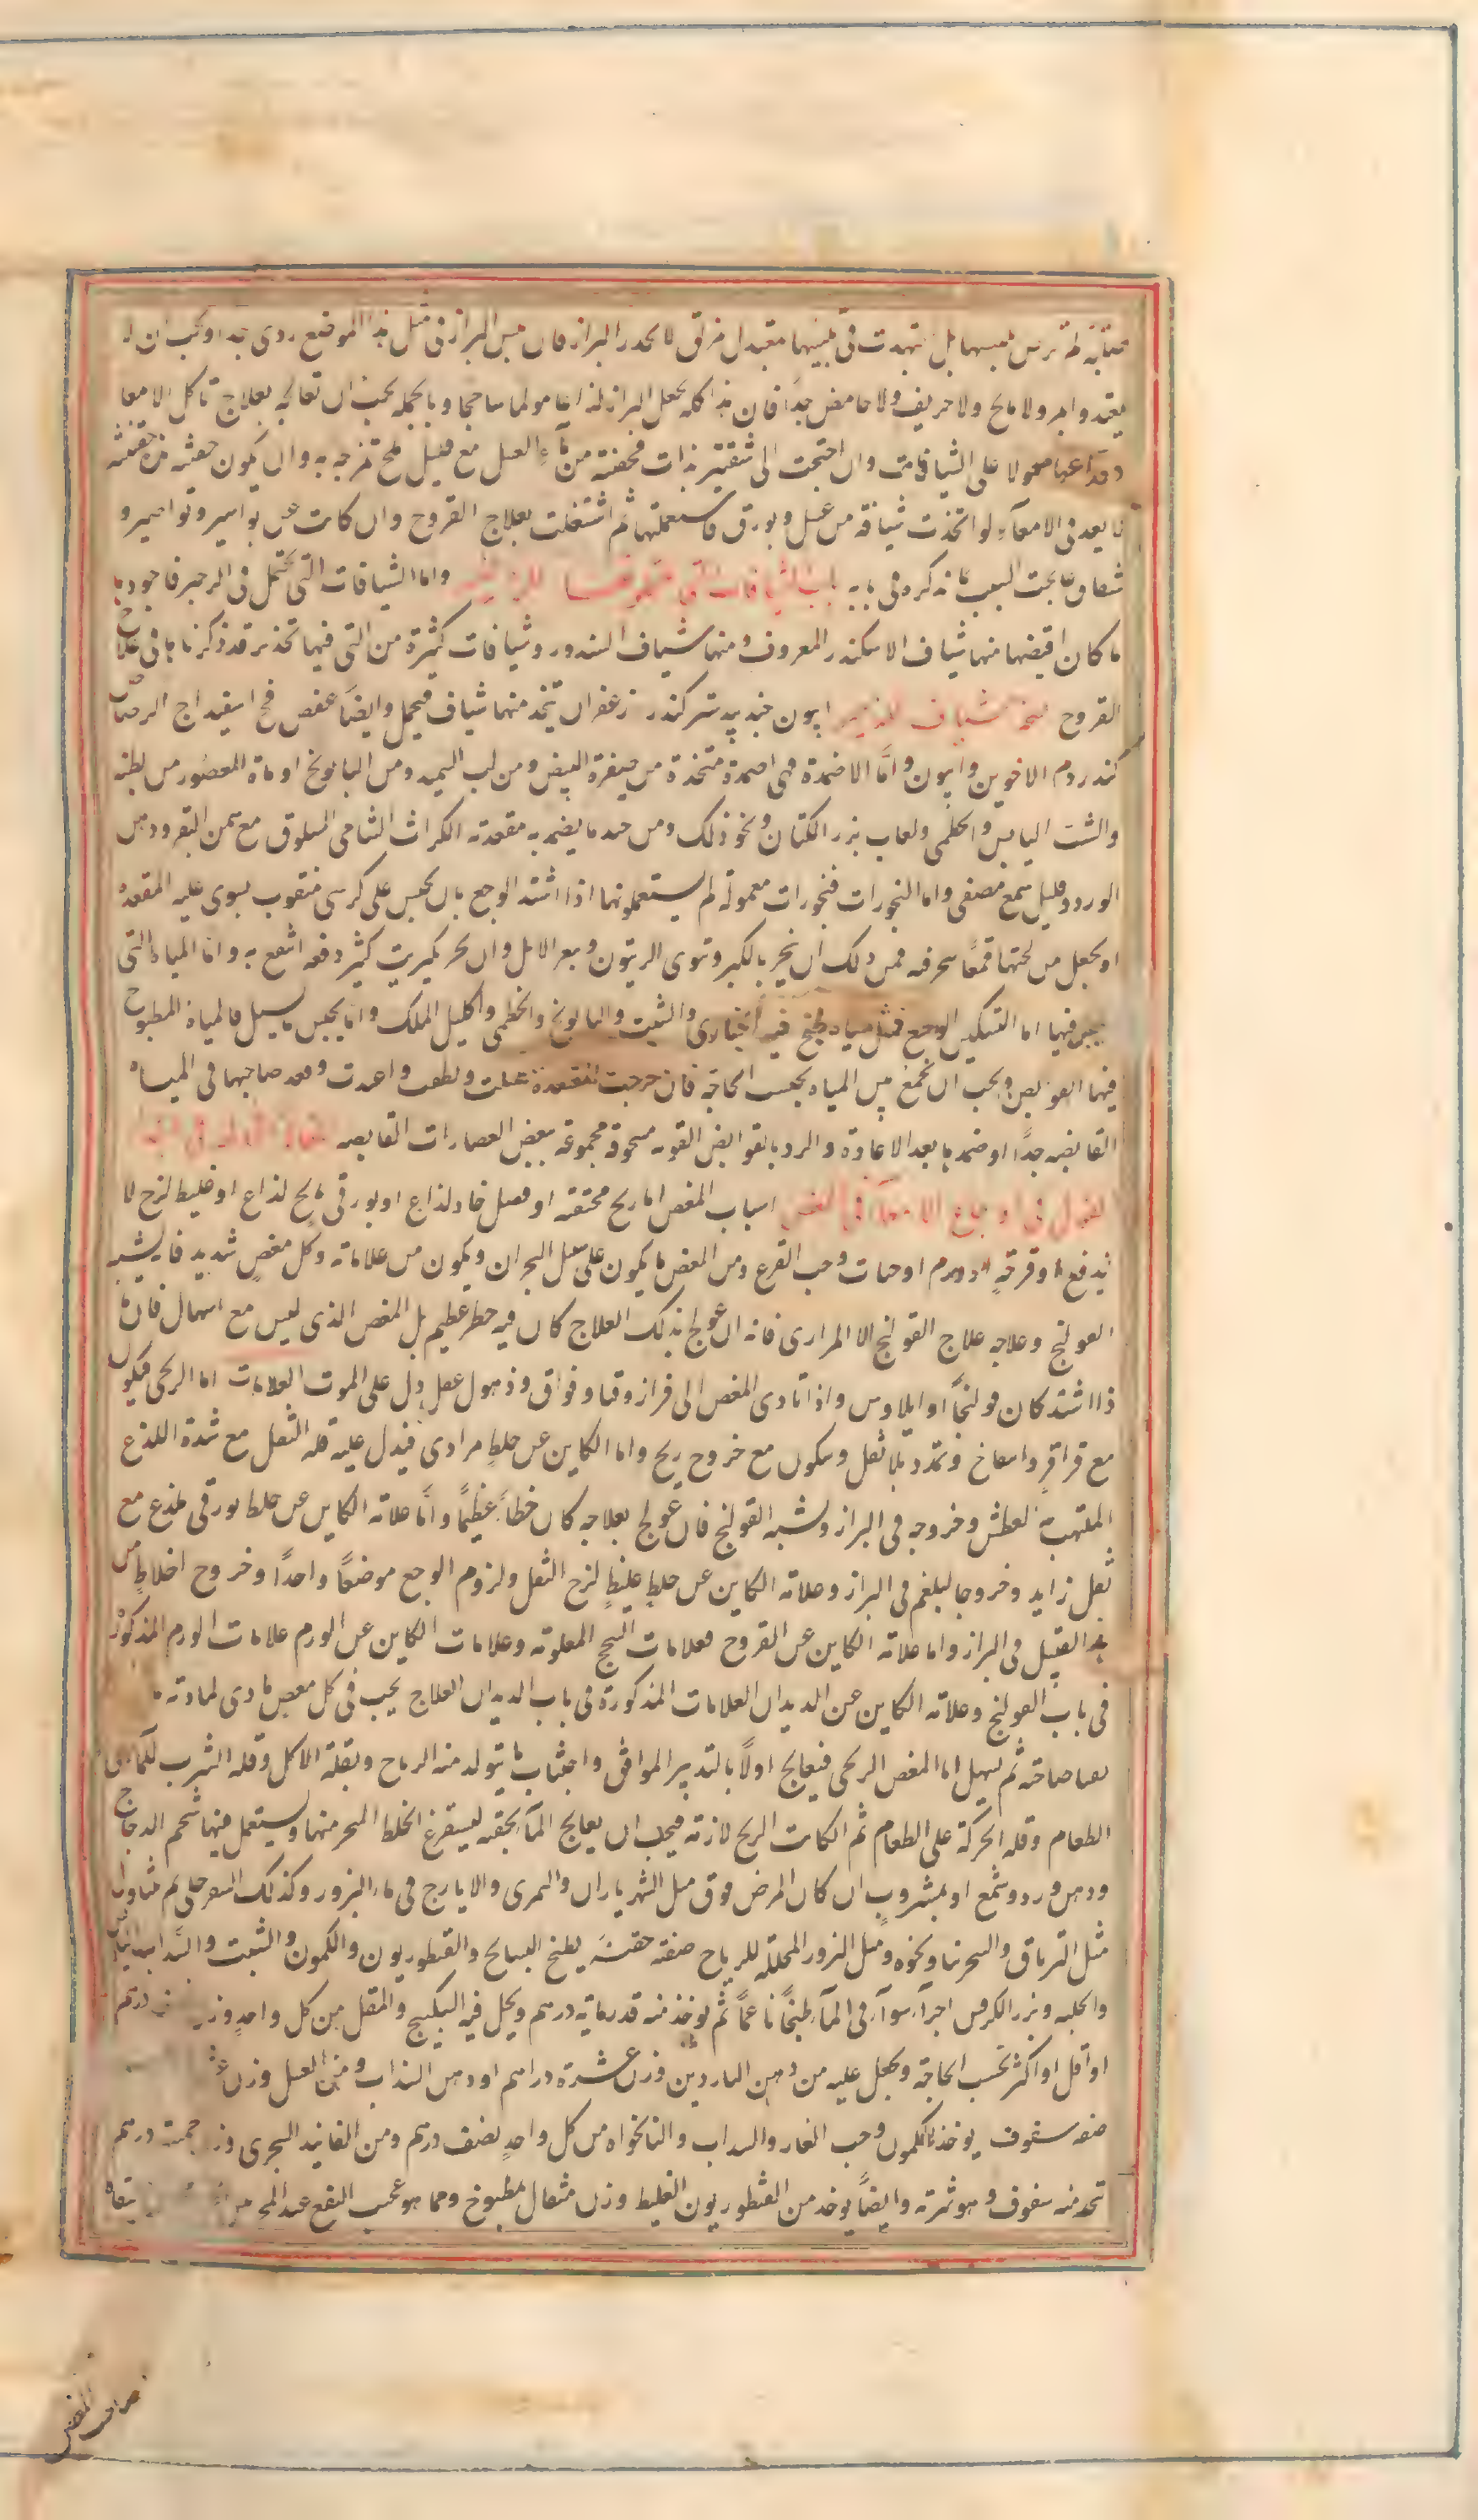 يلبسها بل تجهدت فى تليينها مقبدل مزلق لا يحدر البراز فان يبس البراز فى مثل هذا الموضع ردى جدا ويجب ان لا
يقيد وامر ولا مالح ولا حريف ولا حامض جدا فان هذا كله يجعل البراز لذاعا مولما ساحجا وبالجملة يجب ان تعالجه بعلاج تاكل الامعا
معولا على الشيافات وان احتجت الى تنقية بدات فحقنته من ماء العسل مع قليل ملح تمزجه به وان يكون حقنته
ما يعد فى الامعاء ولو اتخذت شيافة من عسل وبورق فاستعملتها ثم اشتغلت بعلاج القروح وان كانت عن بواسير ونواصير و
شقاق عالجت السبب بما نذكره فى بابه باب الشيافات التى للزحير واما الشيافات التى تحتمل فى الزحير فاجودها
ما كان اقبضها منها شياف الاسكندر المعروف ومنها شياف السندور وشيافات كثيرة من التى فيها تخدير قد ذكرناها فى علاج
القروح نسخة شياف للزحير افيون جندبيدستر كندر زعفران يتخذ منها شياف فيحمل وايضا عفص فج اسفيداج الرصاص
كندر دم الاخوين وافيون واما الاضمدة فهى اضمدة متخذة من صفرة البيض ومن لب السميد ومن البابونج او ماؤه المعصور من رطبه
والشبت اليابس والخطمى ولعاب بزر الكتان ونحو ذلك ومن جيد ما يضمد به مقعدته الكراث الشامى المسلوق مع سمن البقر ودهن
الورد وقليل شمع مصفى واما البخورات فبخورات معمولة لهم يستعملونها اذا اشتد الوجع بان يجلس على كرسى مثقوب يسوى عليه المقعدة
او يجعل من تحتها قمعا بحرفه فمن ذلك ان يبخر بالكبر ونوى الزيتون وبعر الابل وان بخر بكبريت كثير دفعه انتفع به واما المياه التى
يجلس فيها اما التسكين الوجع فمثل مياه طبخ فيه الخبازى والشبت والبابونج والخطمى واكليل الملك واما يحبس ما يسيل فالمياه المطبوخ
فيها القوابض ويجب ان تجمع بين المياه بحسب الحاجة فان خرجت المقعدة غسلت ونظفت واعيدت وقعد صاحبها فى المياه
القابضه جدا او ضمد بها بعد الاعادة والرد بالقوابض القويه مسحوقه مجموعة ببعض العصارات القابضه
القول فى اوجاع الامعاء فى المغص اسباب المغص اما ريح محتقنه او فضل حاد لذاع او بورقى مالح لذاع او غليظ لزج لا
يندفع او قرحة او ورم او حيات وحب القرع ومن المغص ما يكون على سبيل البحران ويكون من علاماته وكل مغص شديد فانه يشبه
القولنج وعلاجه علاج القولنج الا المرارى فانه ان عولج بذلك العلاج كان فيه خطر عظيم بل المغص الذى ليس مع اسهال فانه
اذا اشتد كان قولنجا او ايلاوس واذا تادى المغص الى كزاز وقيا وفواق وذهول عقل دل على الموت العلامات اما الريحى فيكون
مع قراقر وانتفاخ وتمدد بلا ثقل وسكون مع خروج ريح واما الكاين عن خلط مرارى فيدل عليه قلة الثقل مع شدة اللذع
الملتهب والعطش وخروجه فى البراز ويشبه القولنج فان عولج بعلاجه كان خطاء عظيما واما علامة الكاين عن خلط بورقى فلذع مع
ثقل زايد وخروج البلغم فى البراز وعلامة الكاين عن خلط غليظ لزج الثقل ولزوم الوجع موضعا واحدا وخروج اخلاط من
هذا القبيل فى البراز واما علامة الكاين عن القروح فعلامات السحج المعلومة وعلامات الكاين عن الورم علامات الورم المذكور
فى باب القولنج وعلامة الكاين عن الديدان العلامات المذكورة فى باب الديدان العلاج يجب فى كل مغص مادى لمادته
ثم يسهل اما المغص الريحى فيعالج اولا بالتدبير الموافق واجتناب ما يتولد منه الرياح وبقلة الاكل وقلة الشرب للماء على
الطعام وقلة الحركة على الطعام ثم ان كانت الريح لازمة فيجب ان يعالج المعا بحقنه ليستفرغ الخلط المبخر منها ويستعمل فيها شحم الدجاج
ودهن ورد وشمع او بمشروب ان كان المرض فوق مثل الشهرياران والتمرى والايارج فى ماء البزور وكذلك السفرجلى ثم يتناول
مثل الترياق والسجرنيا ونحوه ومثل البزور المحلله للرياح صفة حقنة يطبخ البسبايج والقنطوريون والكمون والشبت والسذاب اليابس
والحلبه وبزر الكرفس اجزاء سواء فى الماء طبخا ناعما ثم يوخذ منه قدر ماية درهم ويحل فيه السكبينج والمقل من كل واحد وزن درهم
او اقل او اكثر بحسب الحاجة ويجعل عليه من دهن الناردين وزن عشرة دراهم او دهن السذاب ومن العسل وزن
صفة سفوف يوخذ الكمون وحب الغار والسداب والنانخواه من كل واحد نصف درهم ومن الفانيد السجزى وزن خمسة درهم
يتخذ منه سفوف وهو شربة وايضا يوخذ من القنطوريون الغليظ وزن مثقال بمطبوخ ومما هو عجيب النفع عند المجربين
صاحب المغص